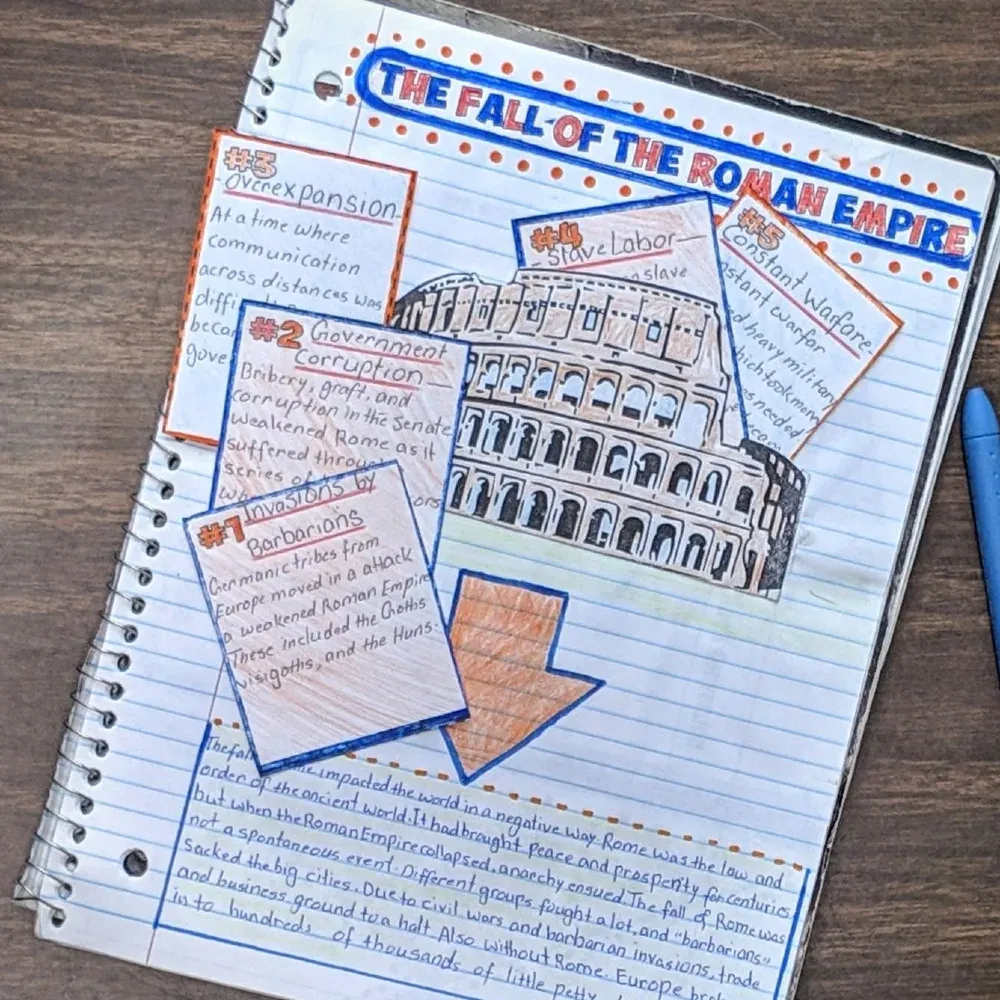 THE FALL OF THE ROMAN EMPIRE
#3
-Overexpansion-
At a time where
communication
across distances was
diffi
becam
gove
#4
Slave Labor—
slave
#5
Constant Warfare-
nstant warfar
ed heavy military
hich took mon
as needed
#2 Government
Corruption—
Bribery, graft, and
corruption in the Senate
weakened Rome as it
suffered throu
series of
wh ors
#1 Invasions by
Barbarians
Germanic tribes from
Europe moved in a attack
a weakened Roman Empire
These included the Goths
visigoths, and the Huns.
The fall me impacted the world in a negative way. Rome was the law and
order of the ancient world. It had brought peace and prosperity for centuries,
but when the Roman Empire collapsed, anarchy ensued. The fall of Rome was
not a spontaneous event. Different groups fought a lot, and "barbarians"
sacked the big cities. Due to civil wars and barbarian invasions, trade
and business ground to a halt. Also without Rome. Europe brok
in to hundreds of thousands of little petty